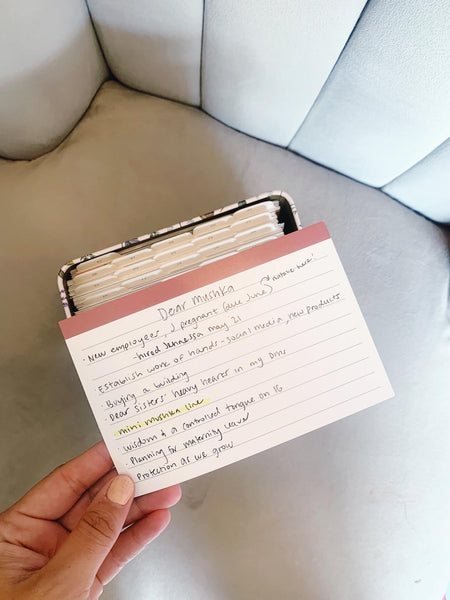 Dear Mushka
· New employees, 1 pregnant (due June)
hired Jennessa may 21
Establish work of hands - social media, new products
· Buying a building
· Dear Sisters' heavy hearts in my DMs
· mini mushka line
· wisdom & a controlled tongue on IG
· Planning for maternity leave
· Protection as we grow